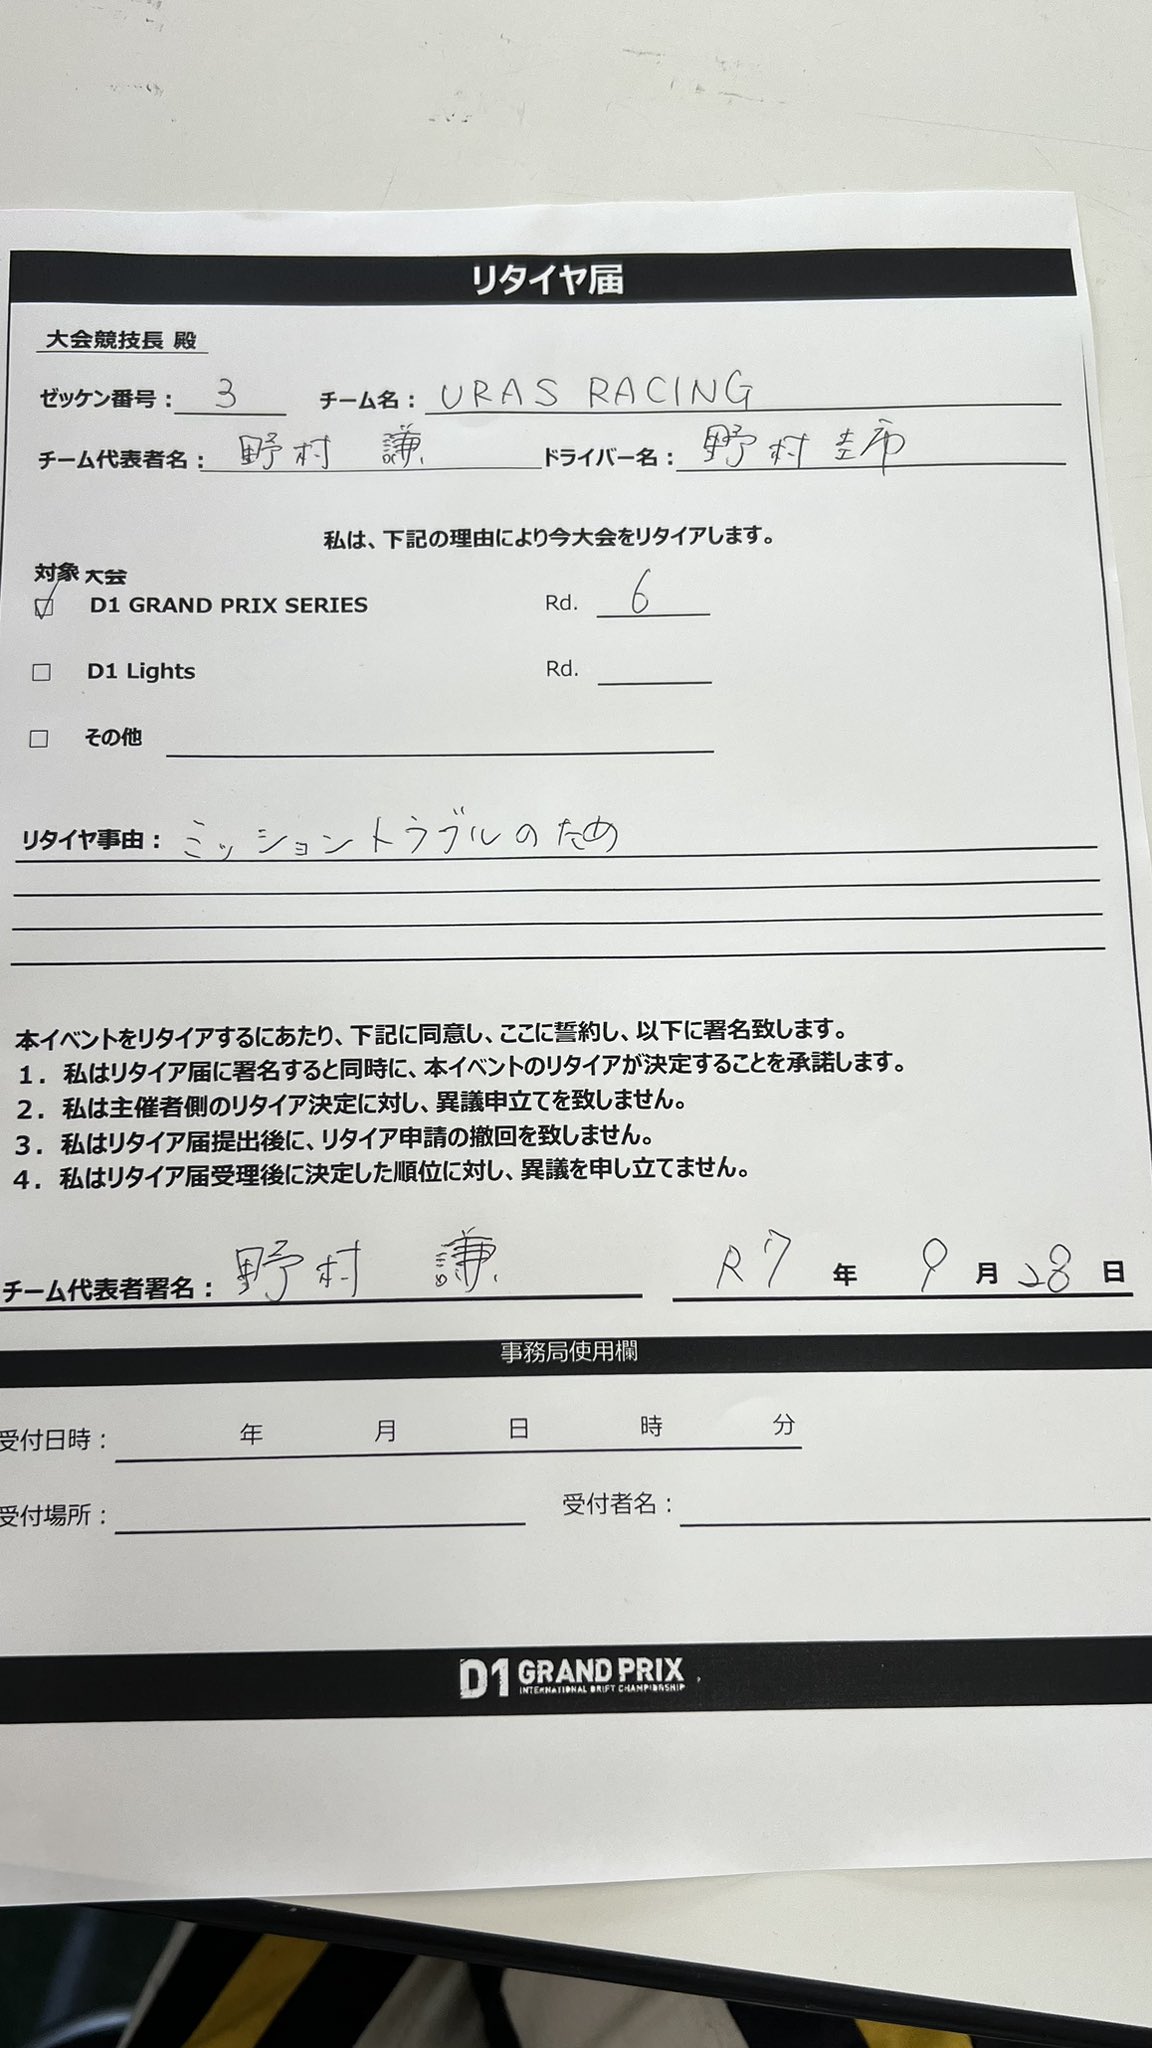 リタイヤ届
大会競技長 殿
ゼッケン番号： 3 チーム名： URAS RACING
チーム代表者名： 野村 謙 ドライバー名： 野村圭市
私は、下記の理由により今大会をリタイアします。
対象大会
☑ D1 GRAND PRIX SERIES Rd. 6
☐ D1 Lights Rd.
☐ その他
リタイヤ事由： ミッショントラブルのため
本イベントをリタイアするにあたり、下記に同意し、ここに誓約し、以下に署名致します。
1．私はリタイア届に署名すると同時に、本イベントのリタイアが決定することを承諾します。
2．私は主催者側のリタイア決定に対し、異議申立てを致しません。
3．私はリタイア届提出後に、リタイア申請の撤回を致しません。
4．私はリタイア届受理後に決定した順位に対し、異議を申し立てません。
チーム代表者署名： 野村 謙 R7 年 9 月 28 日
事務局使用欄
受付日時： 年 月 日 時 分
受付場所： 受付者名：
D1 GRAND PRIX
INTERNATIONAL DRIFT CHAMPIONSHIP